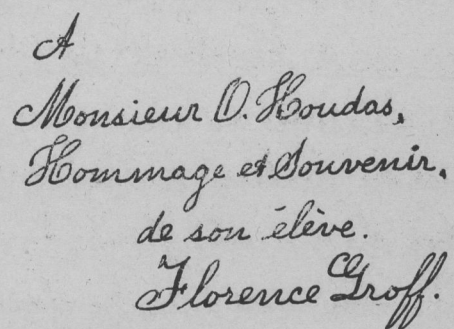 A
Monsieur O. Houdas,
Hommage et Souvenir,
de son élève.
Florence Groff.